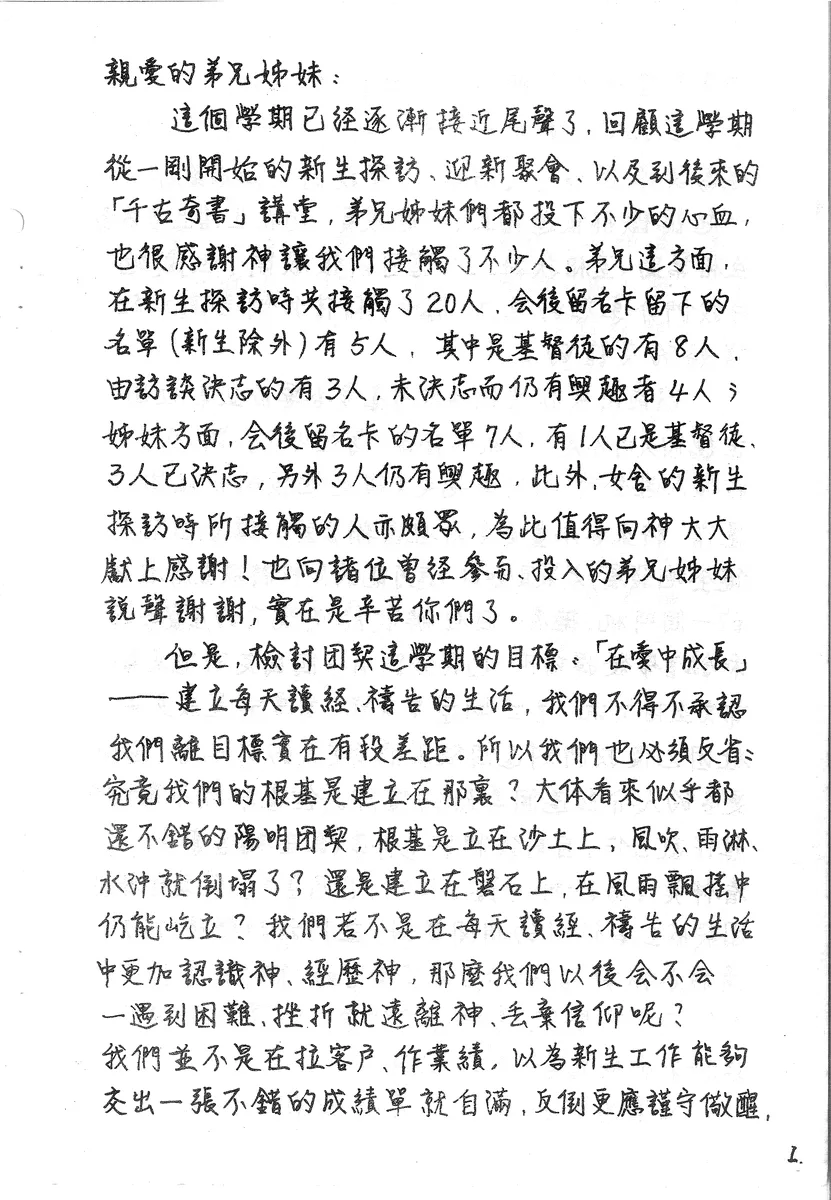 親愛的弟兄姊妹：
這個學期已经逐漸接近尾聲了，回顧這學期
從一剛開始的新生探訪、迎新聚會、以及到後來的
「千古奇書」講堂，弟兄姊妹們都投下不少的心血，
也很感謝神讓我們接觸了不少人。弟兄這方面，
在新生探訪時共接觸了20人，会後留名卡留下的
名單(新生除外)有5人，其中是基督徒的有8人，
由訪談決志的有3人，未決志而仍有興趣者4人；
姊妹方面，会後留名卡的名單7人，有1人已是基督徒、
3人已決志，另外3人仍有興趣，此外，女舍的新生
探訪時所接觸的人亦頗眾，為此值得向神大大
獻上感謝！也向諸位曾经參與、投入的弟兄姊妹
說聲謝謝，實在是辛苦你們了。
但是，檢討团契這學期的目標：「在愛中成長」
——建立每天讀経、禱告的生活，我們不得不承認
我們離目標實在有段差距。所以我們也必須反省：
究竟我們的根基是建立在那裏？大体看來似乎都
還不錯的陽明团契，根基是立在沙土上，風吹、雨淋、
水沖就倒塌了？還是建立在磐石上，在風雨飄搖中
仍能屹立？我們若不是在每天讀経、禱告的生活
中更加認識神、經歷神，那麼我們以後会不会
一遇到困難、挫折就遠離神、丟棄信仰呢？
我們並不是在拉客户、作業績，以為新生工作能夠
交出一張不錯的成績單就自滿，反倒更應謹守儆醒，
1.